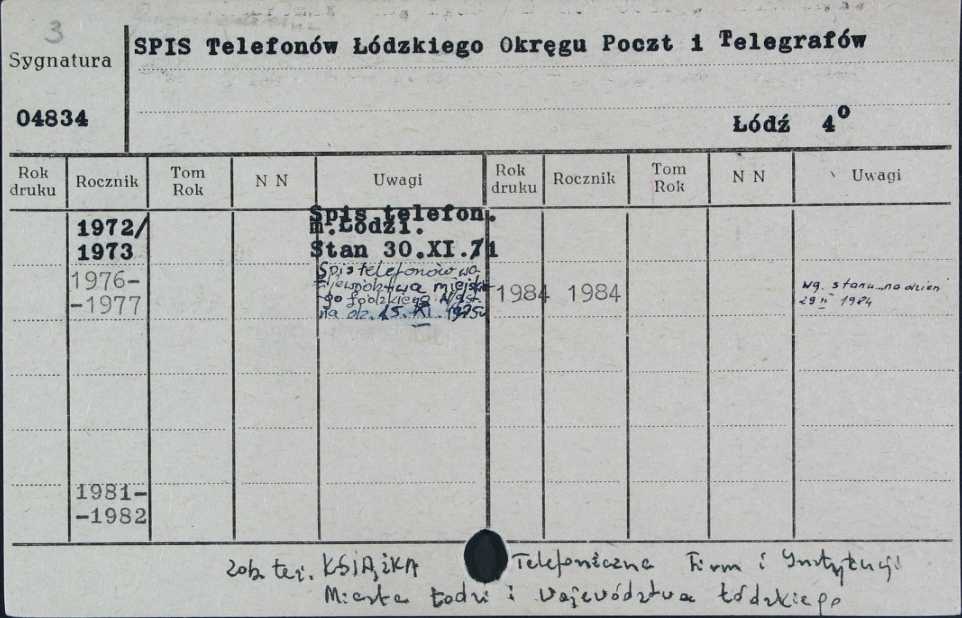 3
Sygnatura
SPIS Telefonów Łódzkiego Okręgu Poczt i Telegrafów
04834
Łódź 4°
Rok druku Rocznik Tom Rok N N Uwagi Rok druku Rocznik Tom Rok N N Uwagi
1972/
1973
Spis telefon.
m.Łodzi.
Stan 30.XI.71
1976-
-1977
Spis telefonów wo-
jewództwa miejskie-
go łódzkiego wg st.
na dz. 15.XI.1975
1984 1984
wg. stanu na dzień
29 II 1984
1981-
-1982
zob. też. KSIĄŻKA Telefoniczna Firm i Instytucji
Miasta Łodzi i Województwa Łódzkiego